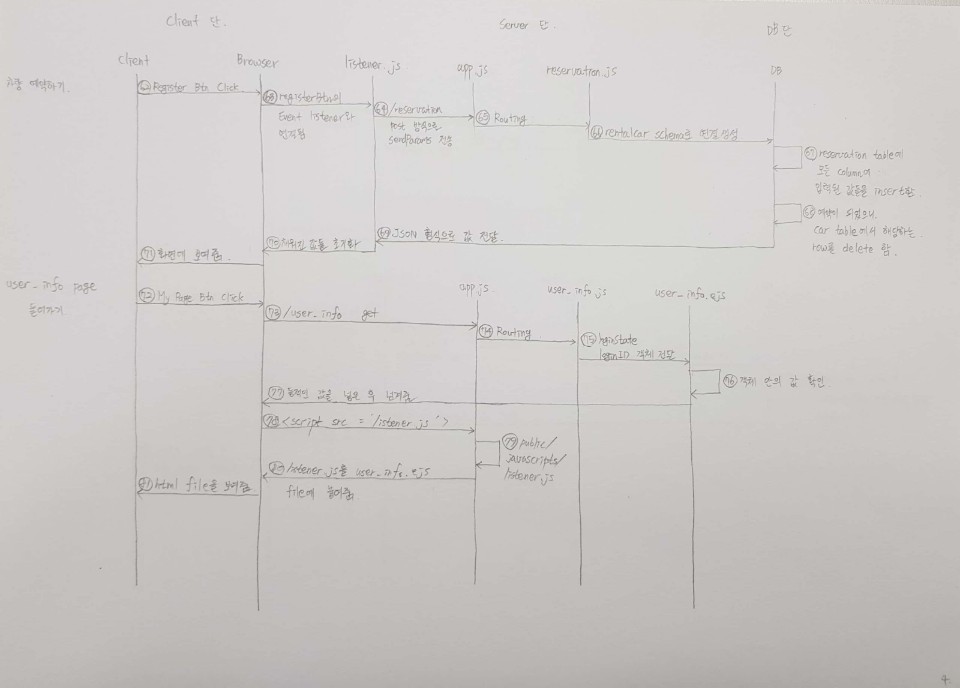 Client 단.
Server 단.
DB 단
Client
Browser
listener.js
app.js
reservation.js
DB
예약하기.
Register Btn Click
63 registerBtn의
Event listener와
연결됨
64 /reservation
Post 방식으로
sendParams 전송
65 Routing
66 rentalcar schema로 연결 생성
67 reservation table에
모든 column에
입력된 값들을 insert함.
68 예약이 되었으니.
car table에서 해당하는
row를 delete 함.
69 JSON 형식으로 값 전달.
70 값을 초기화
71 화면에 보여줌.
user_info page
들어가기.
72 My Page Btn Click
73 /user_info get
app.js
user_info.js
user_info.ejs
74 Routing
75 loginState
loginID 객체 전달
76 객체 안의 값 확인.
77 동적인 값을 넣은 후 넘겨줌.
78 <script src = '/listener.js'>
79 public/
javascripts/
listener.js
80 listener.js를 user_info.ejs
file에 넣어줌.
81 html file을 보여줌.
4.